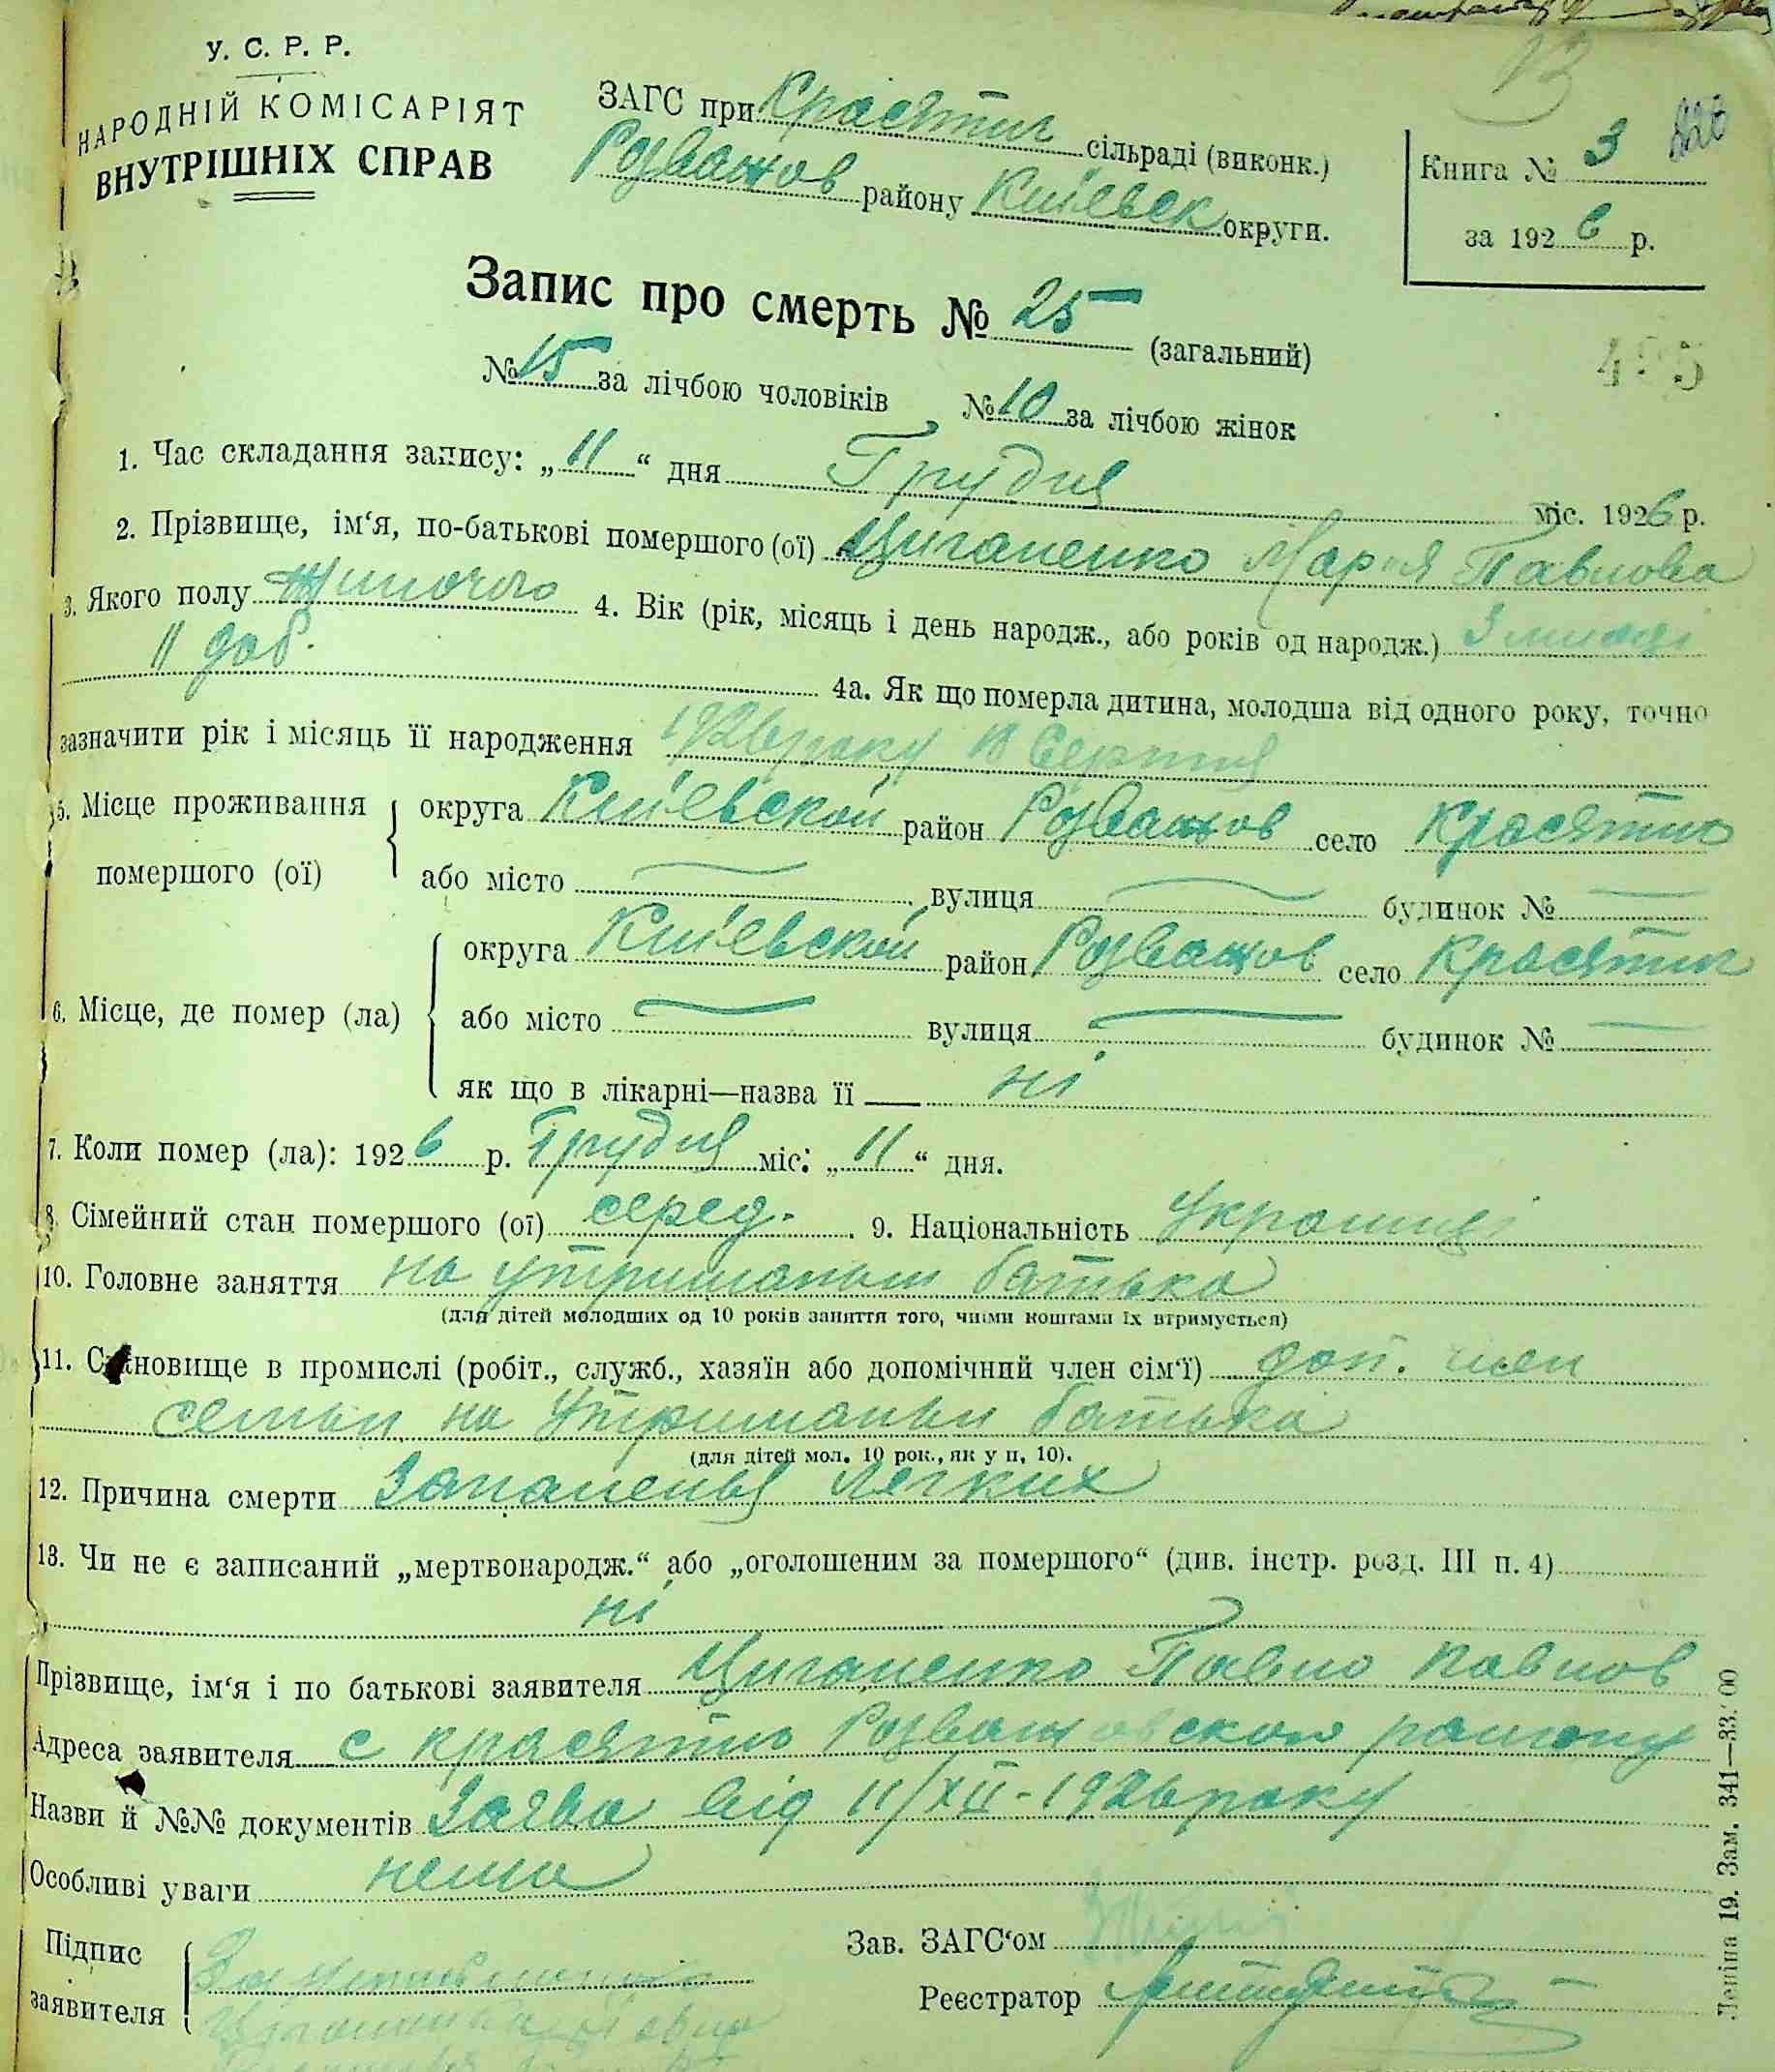 У. С. Р. Р.
НАРОДНІЙ КОМІСАРІЯТ
ВНУТРІШНІХ СПРАВ
ЗАГС при Красятич сільраді (виконк.)
Розважов району Київськ округи.
Книга № 3
за 1926 р.
13
Запис про смерть № 25 (загальний)
№ 15 за лічбою чоловіків № 10 за лічбою жінок
1. Час складання запису: „11“ дня Грудня міс. 1926 р.
2. Прізвище, ім‘я, по-батькові помершого (ої) Циганенко Мария Павлова
3. Якого полу жиночого 4. Вік (рік, місяць і день народж., або років од народж.) 3 мисяці
11 доб.
4а. Як що померла дитина, молодша від одного року, точно
зазначити рік і місяць її народження 1926 року 18 Серпня
5. Місце проживання помершого (ої)
округа Київськой район Розважов село Красятич
або місто вулиця будинок №
6. Місце, де помер (ла)
округа Київськой район Розважов село Красятич
або місто вулиця будинок №
як що в лікарні—назва її — ні
7. Коли помер (ла): 1926 р. Грудня міс. „11“ дня.
8. Сімейний стан помершого (ої) серед. 9. Національність
10. Головне заняття на утриманьи батька
(для дітей молодших од 10 років заняття того, чиїми коштами їх втримується)
11. Становище в промислі (робіт., служб., хазяїн або допомічний член сім‘ї) доп. член
семьи на утриманьи батька
(для дітей мол. 10 рок., як у п. 10).
12. Причина смерти Запаленья легких
13. Чи не є записаний „мертвонародж.“ або „оголошеним за помершого“ (див. інстр. розд. III п. 4)
ні
Прізвище, ім‘я і по батькові заявителя Циганенко Павло Павлов
Адреса заявителя с Красятич Розважовской району
Назви й №№ документів Заява від 11/XII-1926 року
Особливі уваги нема
Підпис заявителя
Зав. ЗАГС‘ом
Реєстратор